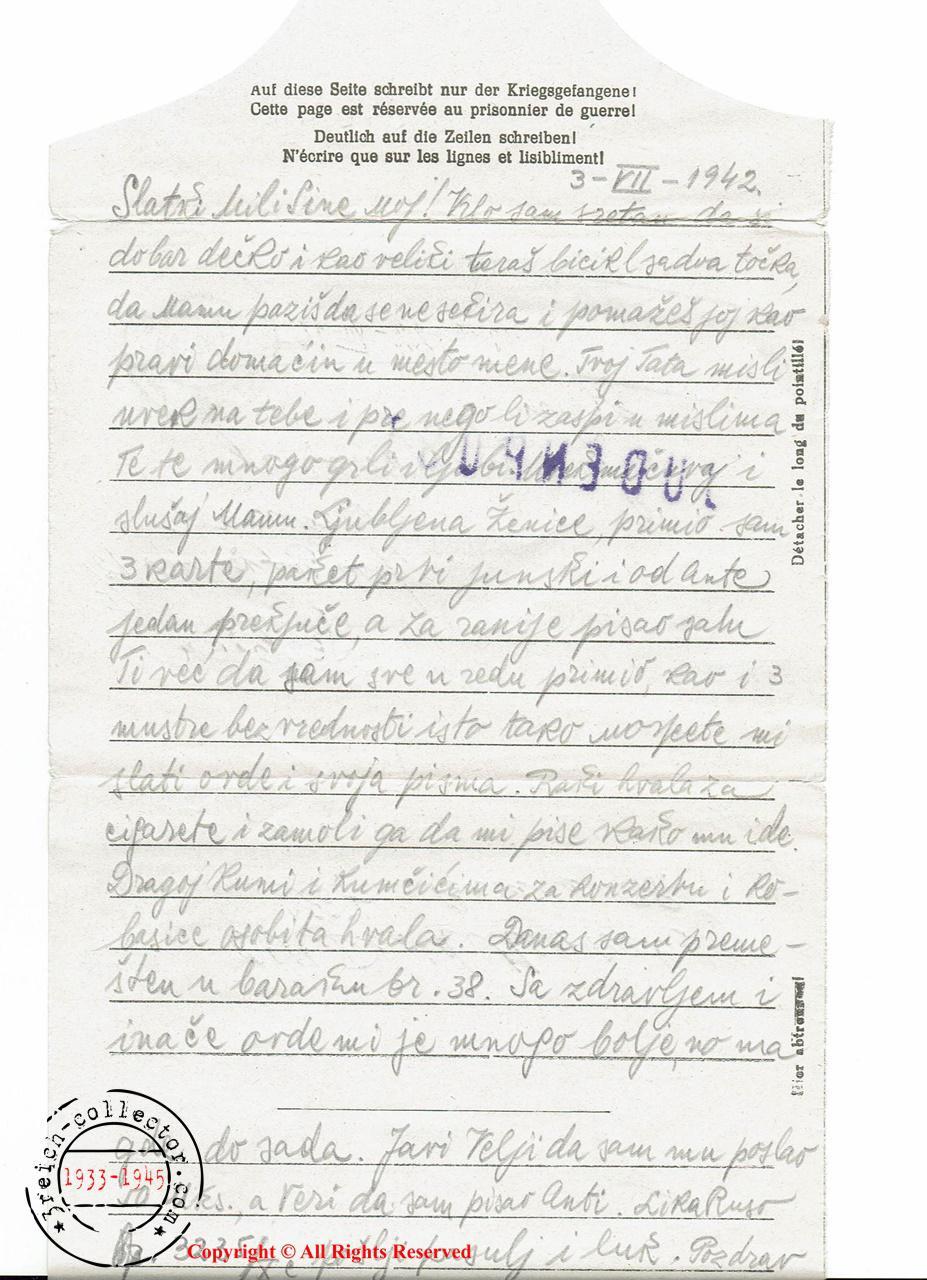 Auf diese Seite schreibt nur der Kriegsgefangene!
Cette page est réservée au prisonnier de guerre!
Deutlich auf die Zeilen schreiben!
N'écrire que sur les lignes et lisiblement!
3-VII-1942.
Slatki Mili Sine Moj! Vrlo sam sretan da si
dobar dečko i kao veliki teraš bicikl sa dva točka,
da Mamu paziš da se ne sekira i pomažeš joj kao
pravi domaćin u mesto mene. Tvoj Tata misli
uvek na tebe i pre nego li zaspi u mislima
Te te mnogo grli i ljubi. i
slušaj Mamu. Ljubljena Ženice, primio sam
3 karte, paket prvi junski i od Ante
jedan prekjuče, a za ranije pisao sam
Ti već da sam sve u redu primio, kao i 3
mustre bez vrednosti isto tako možete mi
slati ovde i svoja pisma. Raki hvala za
cigarete i zamoli ga da mi piše kako mu ide.
Dragoj Kumi i Kumčićima za konzervu i ko-
basice osobita hvala. Danas sam preme-
šten u baraku br. 38. Sa zdravljem i
inače ovde mi je mnogo bolje no ma
do sada. Javi Velji da sam mu poslao
a Veri da sam pisao Anti. Lika Ruso
pasulj i luk. Pozdrav
Détacher le long du pointillé!
Hier abtrennen!
3reich-collector.com
1933-1945
Copyright © All Rights Reserved